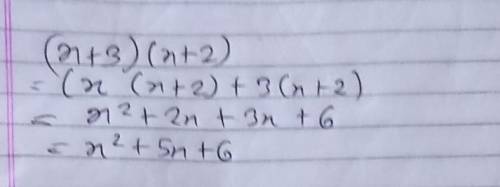 (x+3)(x+2)
= (x (x+2) + 3(x+2)
= x² + 2x + 3x + 6
= x² + 5x + 6